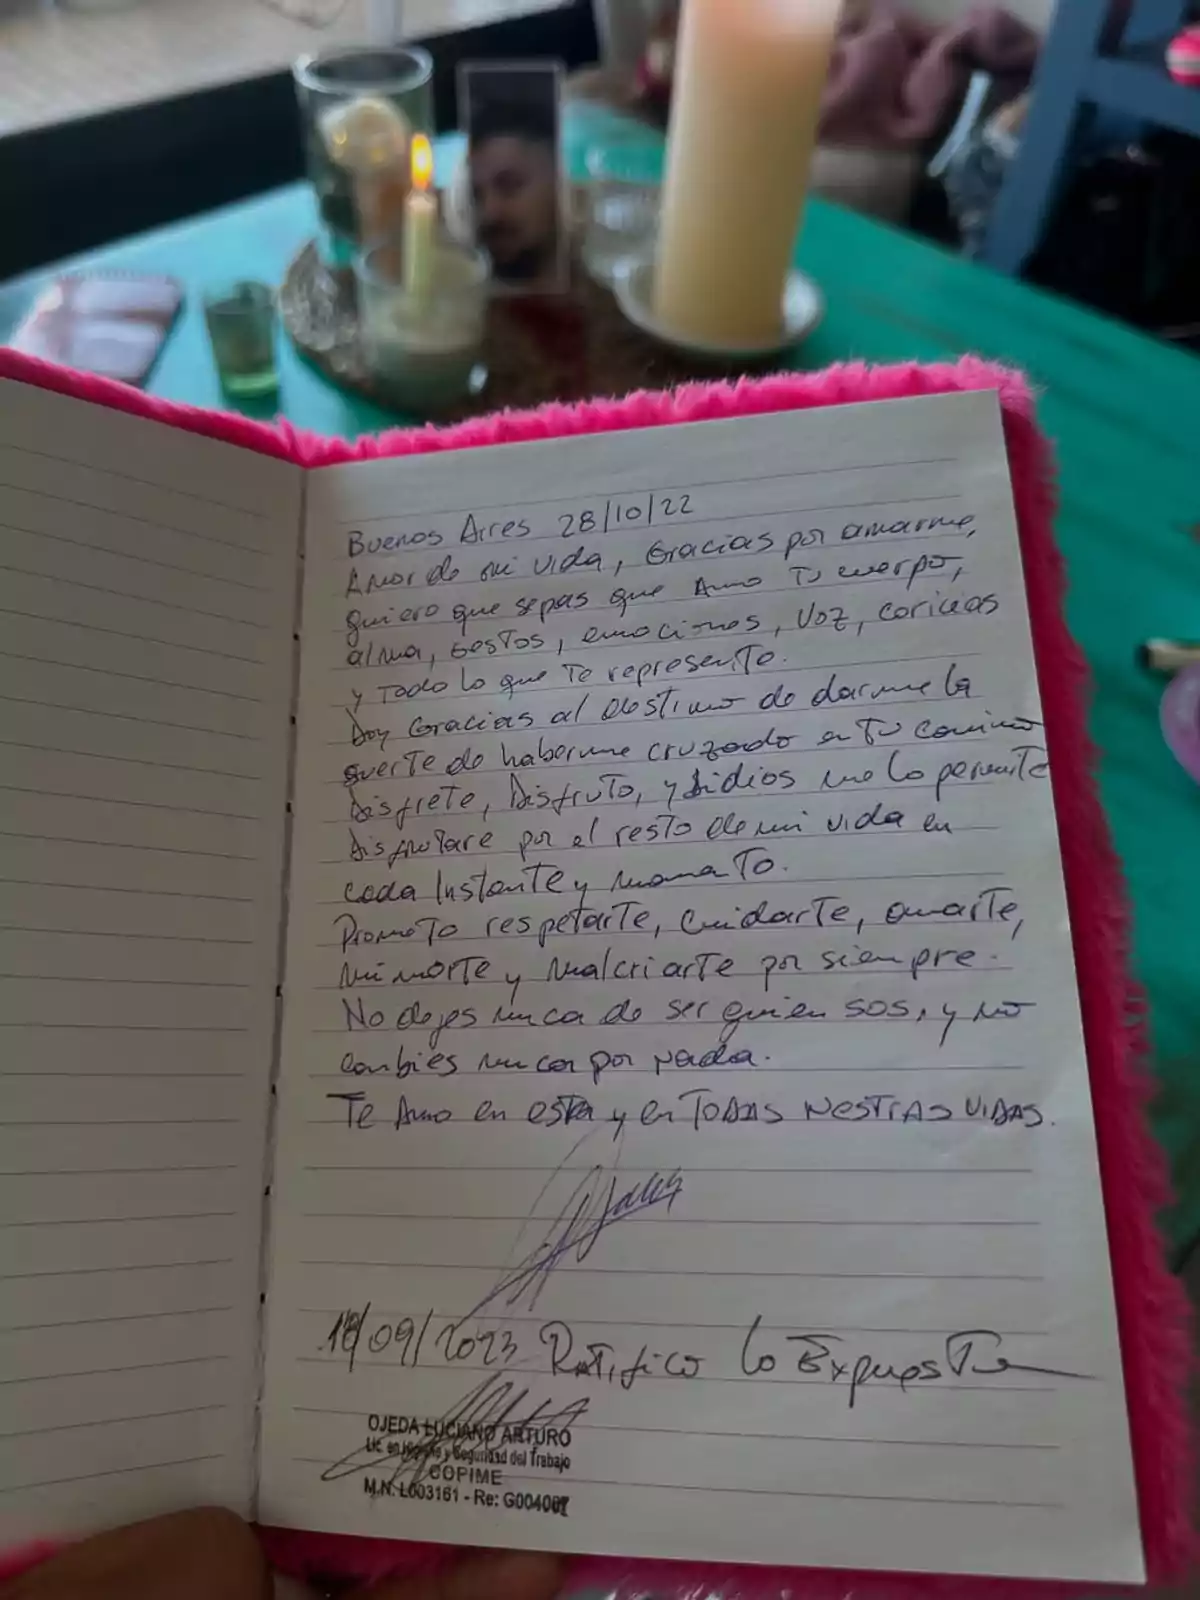 Buenos Aires 28/10/22
Amor de mi vida, Gracias por amarme,
quiero que sepas que Amo Tu cuerpo,
alma, gestos, emociones, Voz, caricias
y Todo lo que Te represento.
Doy Gracias al destino de darme la
suerte de haberme cruzado en Tu camino
Disfrete, Disfruto, y si dios me lo permite
Disfrutare por el resto de mi vida en
cada Instante y momento.
Prometo respetarte, cuidarte, amarte,
mimarte y malcriarte por siempre.
No dejes nunca de ser quien sos, y no
cambies nunca por nada.
Te Amo en esta y en TODAS NESTRAS VIDAS.
18/09/2023 Ratifico lo Expuesto
OJEDA LUCIANO ARTURO
Lic. en Higiene y Seguridad del Trabajo
COPIME
M.N. L003161 - Re: G00406